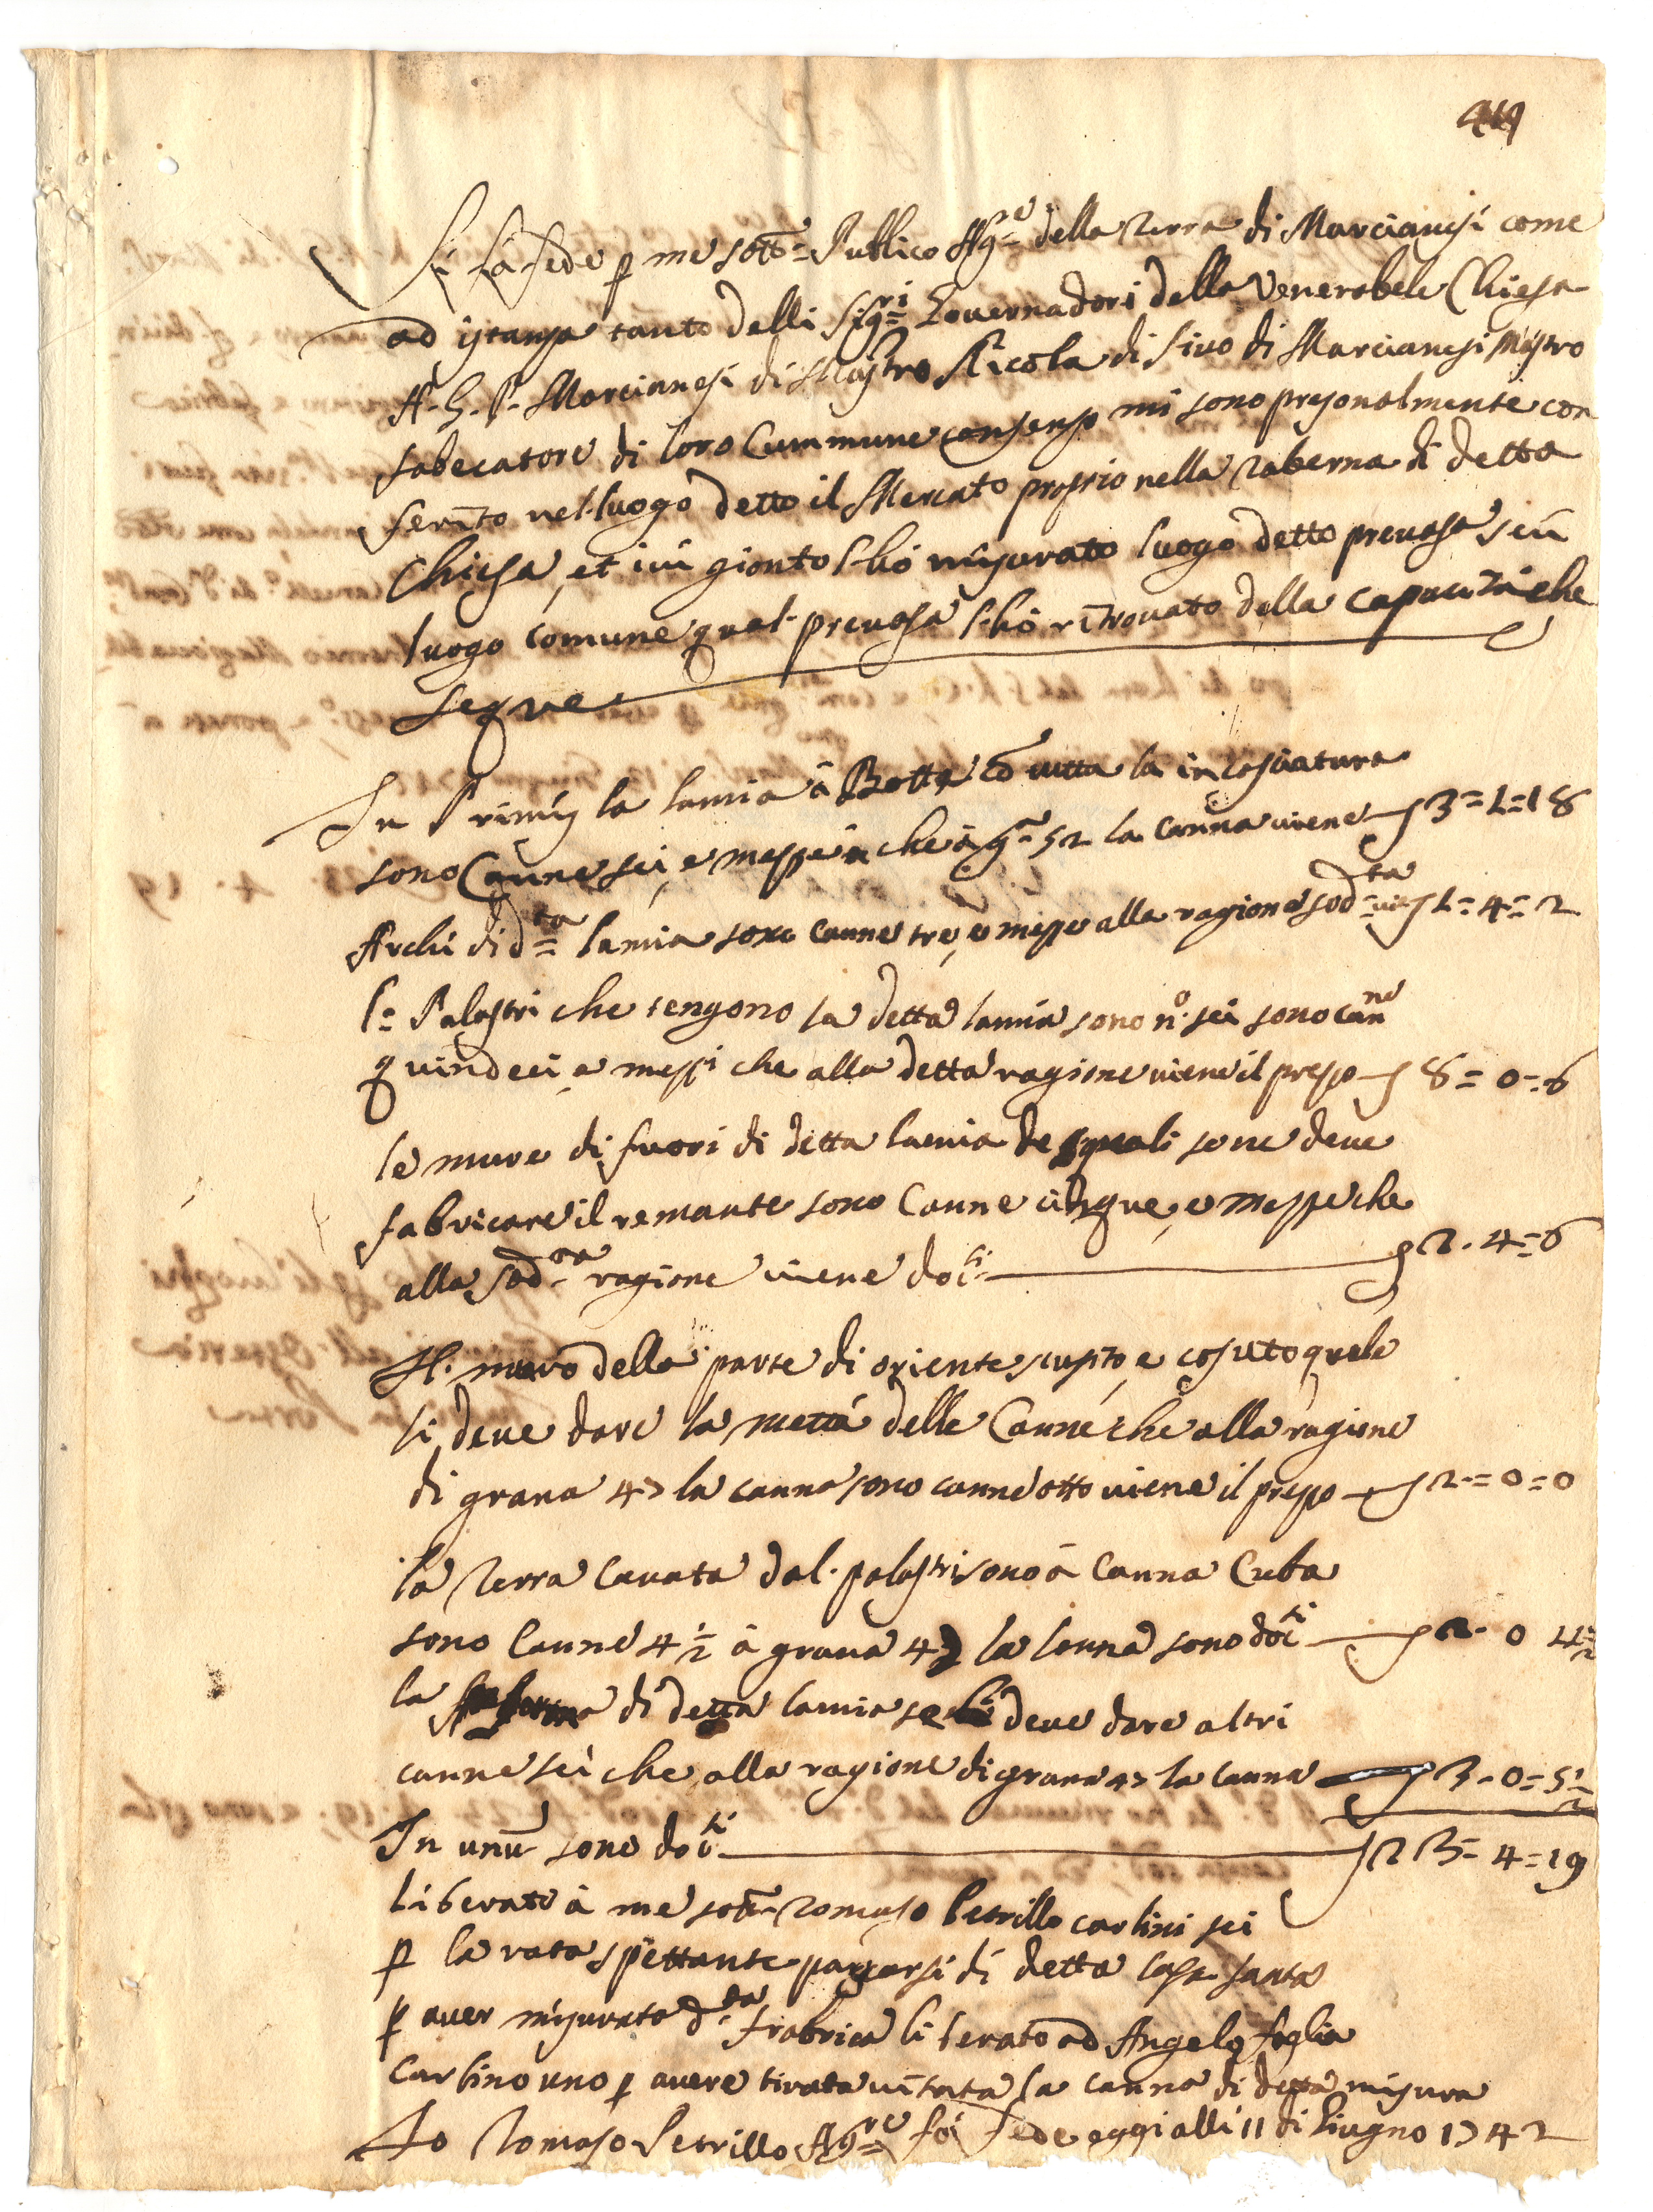 419
Si fà fede p me sott.= Publico Ag=re della Terra di Marcianesi come
ad istanza tanto delli Sig=ri Governadori della Venerabele Chiesa
A. G. P. Marcianesi di Mastro Nicola di Sivo di Marcianesi Mastro
fabecatore di loro Commune consenzo mi sono presonalmente con
ferito nel luogo detto il Mercato proprio nella Taberna di detta
Chiesa, et ivi gionto l'hò misurato luogo detto prevasa seù
luogo comune qual. prevasa l'hò ritrovato della capacità che
segue
In Primis la lamia à Botte cō tutta la incosciatura
sono Canne sei, e mezze che à g.a 52 la Canna viene 3=1=18
Archi di d=ta lamia sono canne tre, e mezze alla ragione sod=ta 1=4=2
l= Palastri che tengono la detta lamia sono n.o sei sono Canne
quindeci e mezzi che alla detta ragione viene il prezzo 8=0=6
le mure di fuori di detta lamia de quali se ne deve
fabricare il remante sono Canne cinque, e mezze che
alla sod.ta ragione viene docti 2.4=6
Il. muro della parte di oriente scusito e cosuto quale
li deve dare la mettà delle Canne che alla ragione
di grana 47 la canna sono canne otto viene il prezzo 2=0=0
la Terra cavata dal. palastri sono à Canna Cuba
sono Canne 4 1/2 à grana 47 la canna sono docti 2. 0 4 1/2
la di detta lamia se li deve dare altri
canne sei che alla ragione di grana 47 la canna 3=0=5 1/2
In unū sono docti 23=4=19
liberato à me sott= Tomaso Petrillo carlini sei
p la rata spettante pagarsi di detta Casa Santa
p aver misurato d.ta frabrica liberato ad Angelo foglia
Carlino uno p avere tirata la canna di detta misura
Io Tomaso Petrillo Ag=re fò fede oggi alli 11 di Giugno 1742